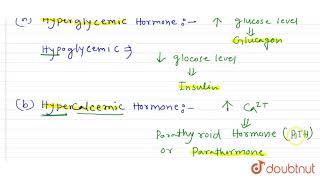 (a) Hyperglycemic Hormone:- ↑ glucose level
⇓
Glucagon
Hypoglycemic ⇒ ↓ glucose level
⇓
Insulin
(b) Hypercalcemic Hormone:- ↑ Ca2+
⇓
Parathyroid Hormone (PTH)
or Parathormone
doubtnut